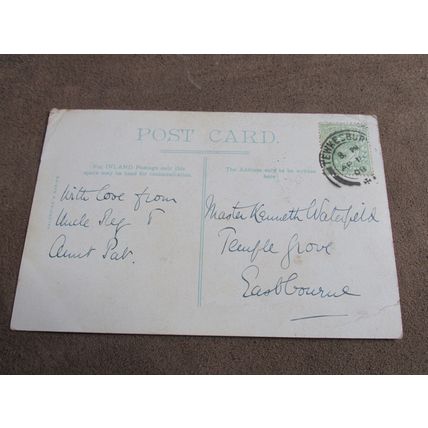 POST CARD.
For INLAND Postage only this
space may be used for communication.
The Address only to be written
here
With love from
Uncle Reg &
Aunt Pat.
Master Kenneth Waterfield
Temple Grove
Eastbourne
TEWKESBUR
8 PM
AP
09